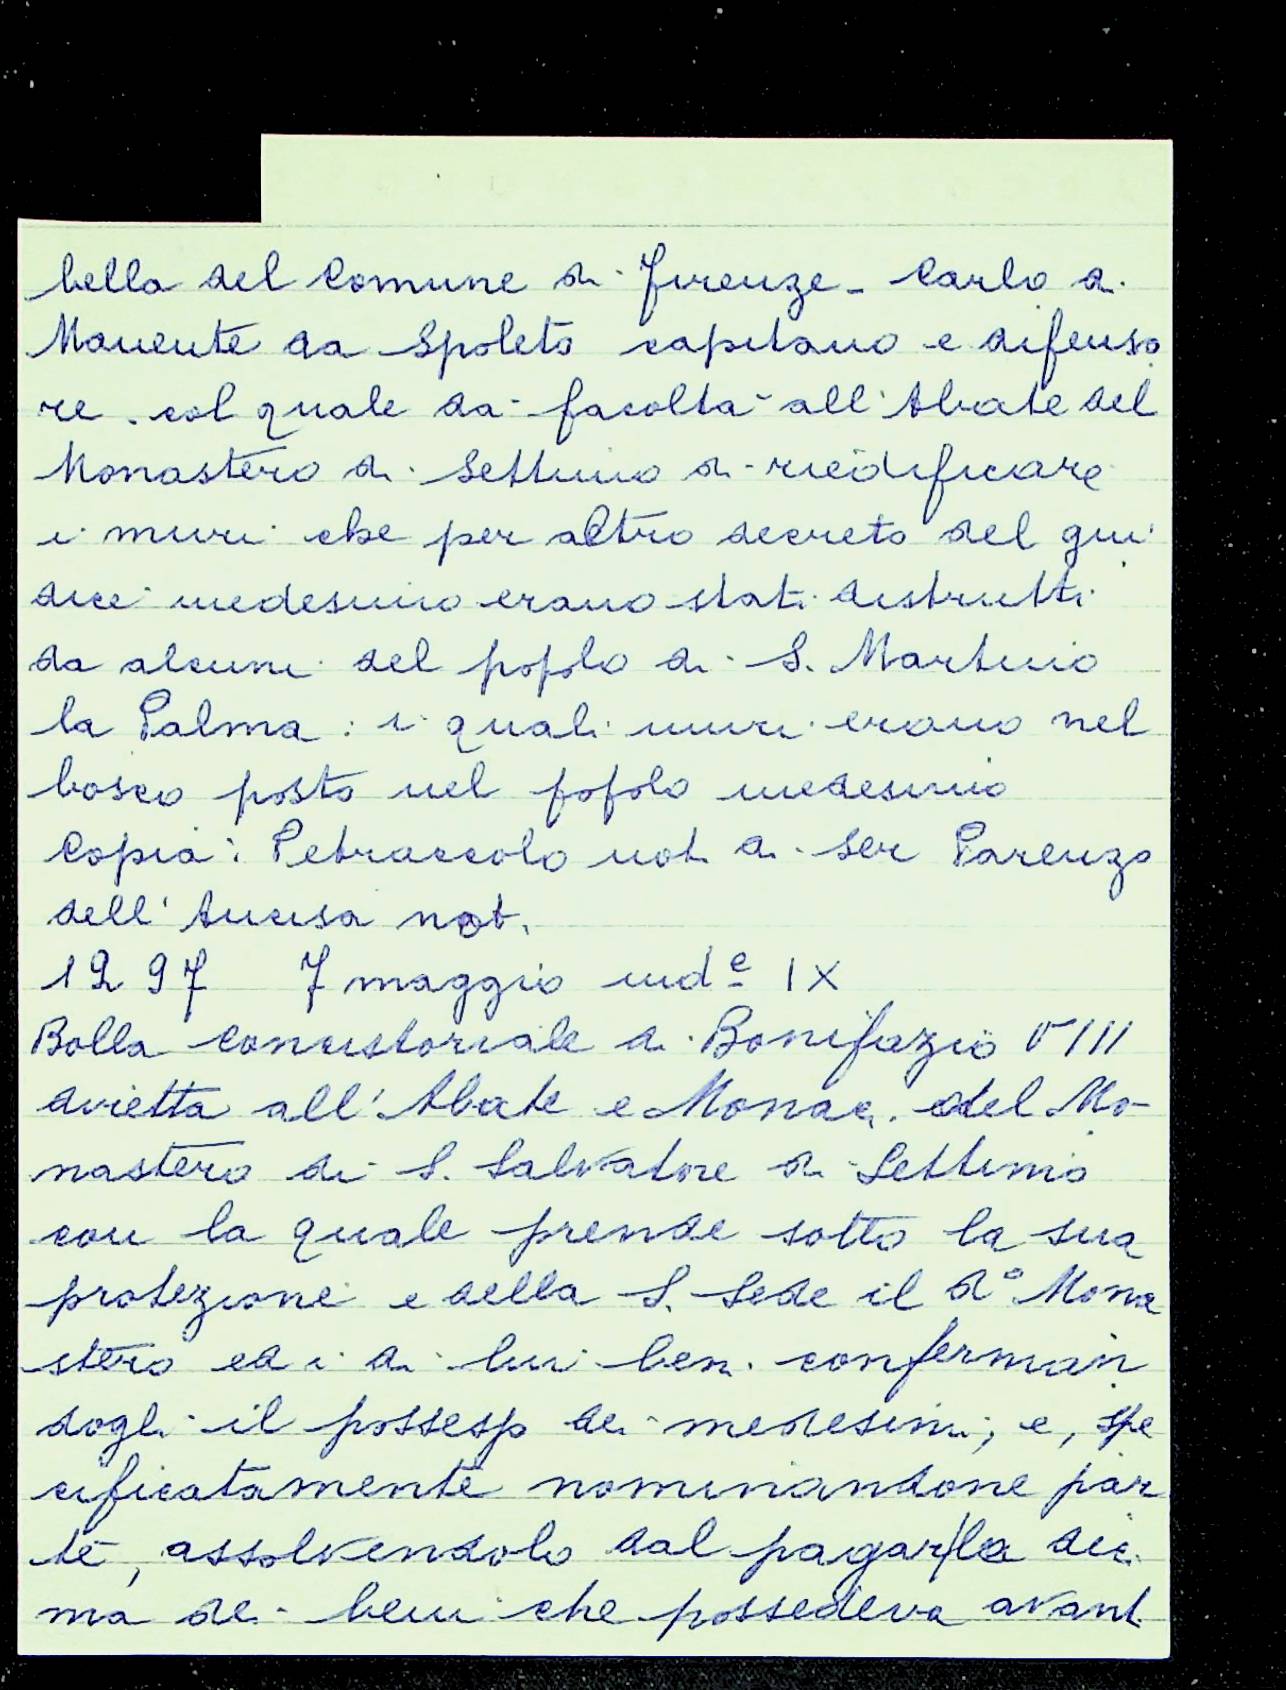 bella del Comune di Firenze - Carlo di
Manente da Spoleto capitano e difenso
re. col quale da facoltà all'Abate del
Monastero di Settimo di riedificare
i muri che per altro decreto del giu
dice medesimo erano stati distrutti
da alcuni del popolo di S. Martino
la Palma: i quali muri erano nel
bosco posto nel popolo medesimo
Copia: Petraccolo not. di ser Parenzo
dell'Ancisa not.
1297 7 maggio indᵉ IX
Bolla Concistoriale di Bonifazio VIII
diretta all'Abate e Monaci del Mo-
nastero di S. Salvatore di Settimo
con la quale prende sotto la sua
protezione e della S. Sede il d° Mona
stero ed i di lui beni confirman
dogli il possesso dei medesimi; e, spe
cificatamente nominandone par
te, assolvendolo dal pagar la deci
ma dei beni che possedeva avanti